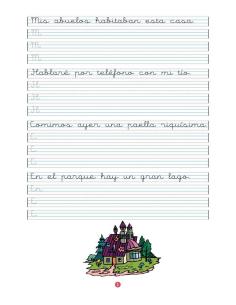 Mis abuelos habitaban esta casa.
M
M
M
Hablaré por teléfono con mi tío.
H
H
H
Comimos ayer una paella riquísima.
C
C
C
En el parque hay un gran lago.
En
E
E